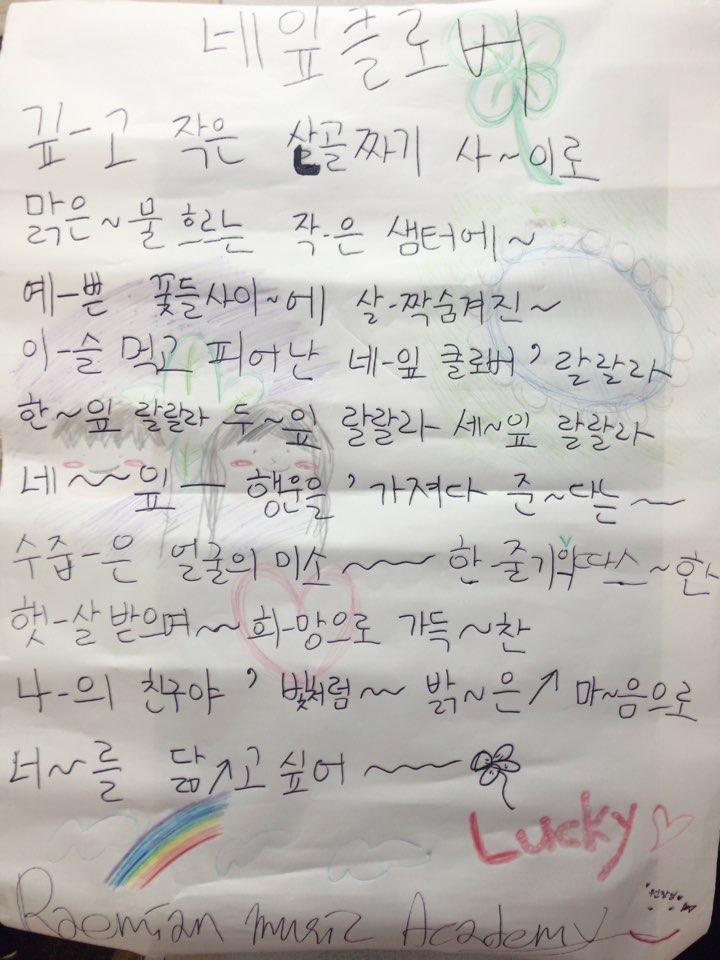 네잎클로버
깊-고 작은 산골짜기 사~이로
맑은~물 흐르는 작-은 샘터에~
예-쁜 꽃들사이~에 살-짝숨겨진~
이-슬 먹고 피어난 네-잎 클로버 ’ 랄랄라
한~잎 랄랄라 두~잎 랄랄라 세~잎 랄랄라
네~~잎ㅡ 행운을 ’ 가져다 준~다는~
수줍-은 얼굴의 미소~~ 한 줄기의∨따스~한
햇-살 받으며~~희-망으로 가득~찬
나-의 친구야 ’ 빛처럼~~ 밝~은↗ 마~음으로
너~를 닮↗고 싶어~~
Lucky
Raemian music Academy